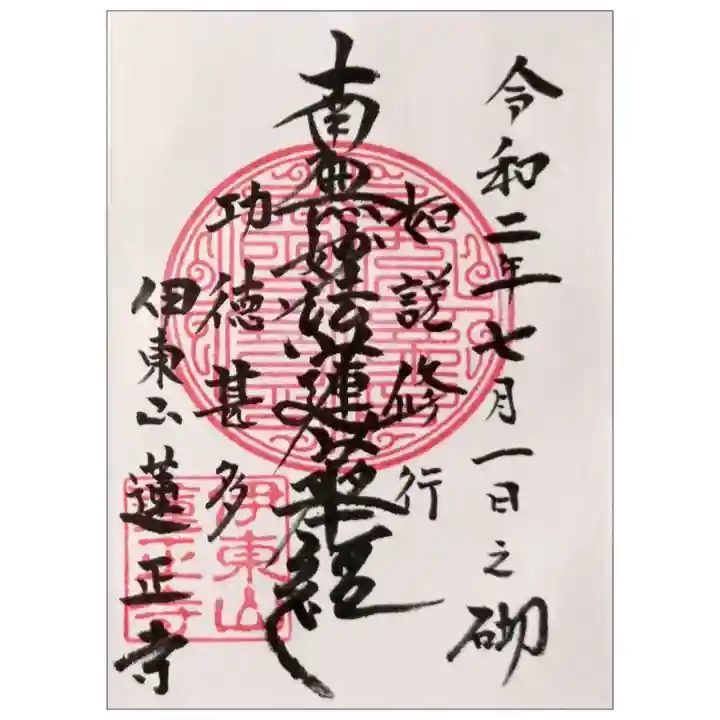 令和二年七月一日之砌
如説修行
南無妙法蓮華経
功徳甚多
伊東山蓮正寺
伊東山
蓮正寺